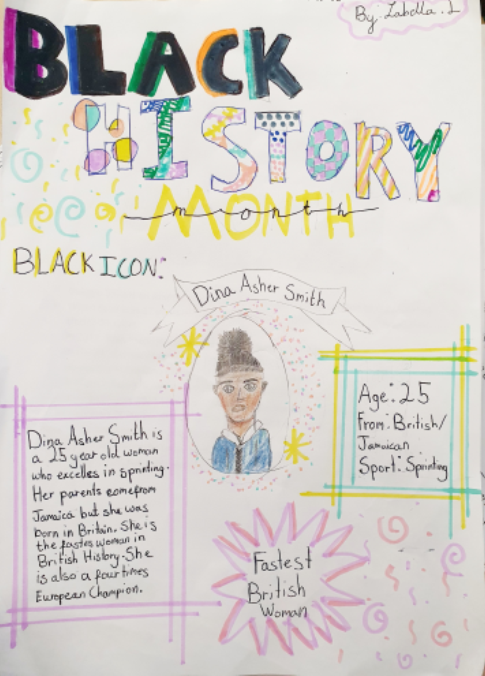 By: Labella . L
BLACK
HISTORY
MONTH
month
BLACK ICON:
Dina Asher Smith
Age: 25
From: British/
Jamaican
Sport: Sprinting
Dina Asher Smith is
a 25 year old woman
who excelles in sprinting.
Her parents come from
Jamaica but she was
born in Britain. She is
the fastes woman in
British History. She
is also a four times
European Champion.
Fastest
British
Woman